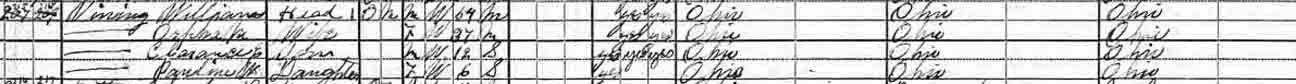 Vining William Head 1 O M M W 64 M yes yes Ohio Ohio Ohio
Wife F W 37 M yes yes Ohio Ohio Ohio
Clarance E Son M W 12 S yes yes yes Ohio Ohio Ohio
Pauline Daughter F W 6 S yes Ohio Ohio Ohio